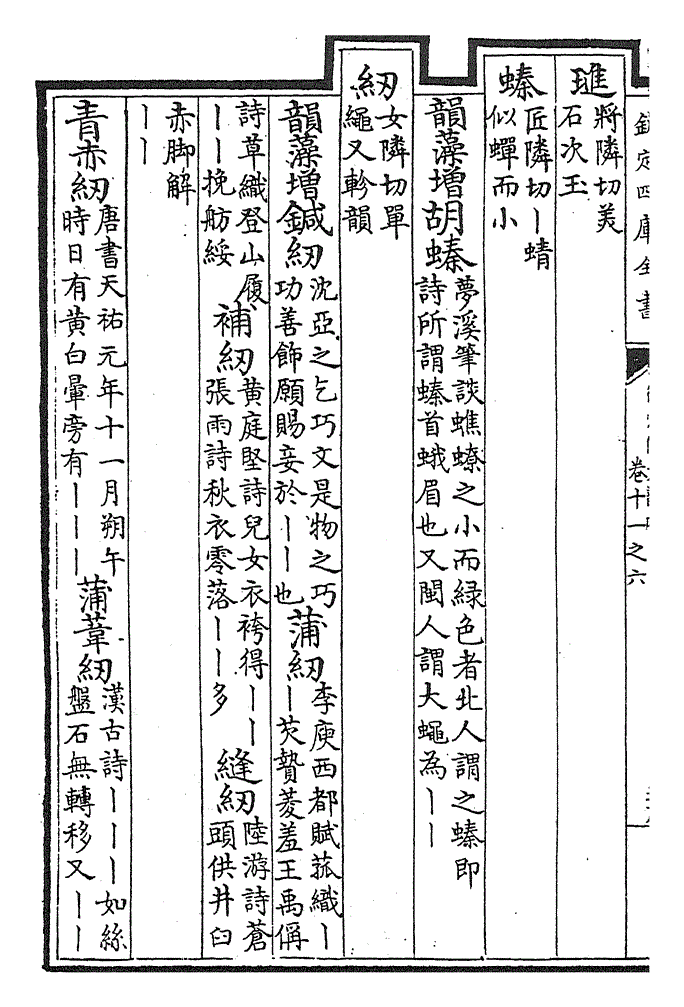 欽定四庫全書 卷十一之六
璡 將隣切美石次玉
螓 匠隣切丨蜻似蟬而小
韻藻增胡螓 夢溪筆談蟭蟟之小而緑色者北人謂之螓即詩所謂螓首蛾眉也又閩人謂大蠅為丨丨
紉 女隣切單繩又軫韻
韻藻增鍼紉 沈亞之乞巧文是物之巧功善飾願賜妾於丨丨也 蒲紉 李庾西都賦菰織丨丨芡贄菱羞王禹偁
詩草織登山履丨丨挽舫綏 補紉 黄庭堅詩兒女衣袴得丨丨張雨詩秋衣零落丨丨多 縫紉 陸游詩蒼頭供井臼
赤脚解丨丨
青赤紉 唐書天祐元年十一月朔午時日有黄白暈旁有丨丨丨 蒲葦紉 漢古詩丨丨丨如絲盤石無轉移又丨丨